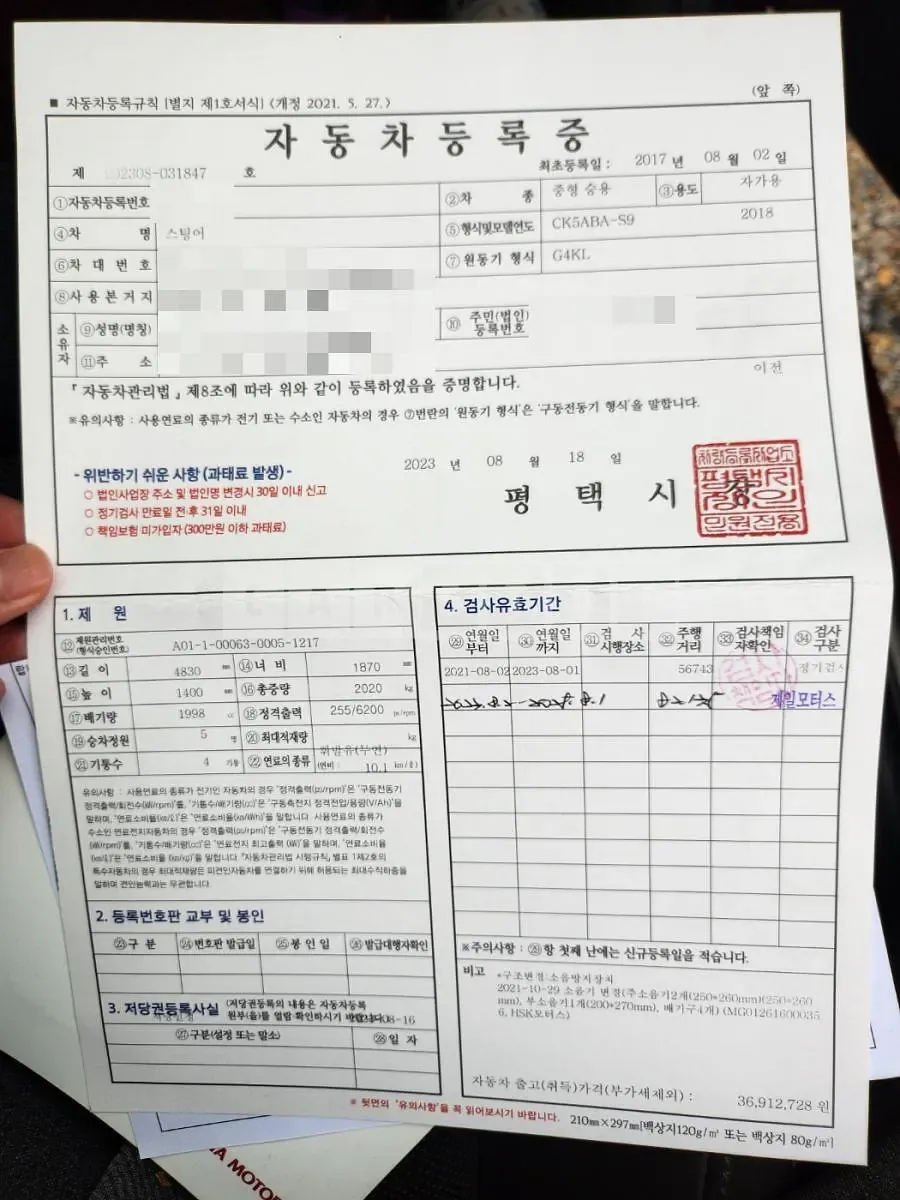 ■ 자동차등록규칙 [별지 제1호서식] <개정 2021. 5. 27.>
(앞 쪽)
자 동 차 등 록 증
제 02308-031847 호
최초등록일 : 2017 년 08 월 02 일
①자동차등록번호
②차 종 중형 승용 ③용도 자가용
④차 명 스팅어
⑤형식및모델연도 CK5ABA-S9 2018
⑥차 대 번 호
⑦원동기 형식 G4KL
⑧사 용 본 거 지
소유자 ⑨성명(명칭)
⑩ 주민(법인)등록번호
⑪주 소
이전
「자동차관리법」 제8조에 따라 위와 같이 등록하였음을 증명합니다.
※유의사항 : 사용연료의 종류가 전기 또는 수소인 자동차의 경우 ⑦번란의 '원동기 형식'은 '구동전동기 형식'을 말합니다.
2023 년 08 월 18 일
- 위반하기 쉬운 사항 (과태료 발생) -
○ 법인사업장 주소 및 법인명 변경시 30일 이내 신고
○ 정기검사 만료일 전·후 31일 이내
○ 책임보험 미가입자 (300만원 이하 과태료)
평 택 시 장
민원전용
1. 제 원
⑫제원관리번호(형식승인번호) A01-1-00063-0005-1217
⑬길 이 4830 mm ⑭너 비 1870 mm
⑮높 이 1400 mm ⑯총중량 2020 kg
⑰배기량 1998 cc ⑱정격출력 255/6200 ps/rpm
⑲승차정원 5 명 ⑳최대적재량 kg
㉑기통수 4 기통 ㉒연료의종류 휘발유(무연) (연비 : 10.1 km/ℓ)
유의사항 : 사용연료의 종류가 전기인 자동차의 경우 '정격출력(ps/rpm)'은 '구동전동기
정격출력/회전수(㎾/rpm)'를, '기통수/배기량(㏄)'은 '구동축전지 정격전압/용량(V/Ah)'을
말하며, '연료소비율(㎞/ℓ)'은 '연료소비율(㎞/㎾h)'을 말합니다. 사용연료의 종류가
수소인 연료전지자동차의 경우 '정격출력(ps/rpm)'은 '구동전동기 정격출력/회전수
(㎾/rpm)'를, '기통수/배기량(㏄)'은 '연료전지 최고출력 (㎾)'을 말하며, '연료소비율
(㎞/ℓ)'은 '연료소비율 (㎞/㎏)'을 말합니다. 「자동차관리법 시행규칙」 별표 1제2호의
특수자동차의 경우 최대적재량은 피견인자동차를 연결하기 위해 허용되는 최대수직하중을
말하며 견인능력과는 무관합니다.
2. 등록번호판 교부 및 봉인
㉓구 분 ㉔번호판 발급일 ㉕봉 인 일 ㉖발급대행자확인
3. 저당권등록사실 (저당권등록의 내용은 자동차등록
원부(을)를 열람·확인하시기 바랍니다.) 08-16
㉗구분(설정 또는 말소) ㉘일 자
4. 검사유효기간
㉙연월일부터 ㉚연월일까지 ㉛검 사 시행장소 ㉜주행거리 ㉝검사책임자확인 ㉞검사구분
2021-08-02 2023-08-01 56743 정기검사
제일모터스
※주의사항 : ㉙항 첫째 난에는 신규등록일을 적습니다.
비고
*구조변경:소음방지장치
2021-10-29 소음기 변경(주소음기2개(250*260mm)(250*260
mm), 부소음기1개(200*270mm), 배기구4개) (MG01261600035
6, HSK모터스)
자동차 출고(취득)가격(부가세제외) : 36,912,728 원
※ 뒷면의 '유의사항'을 꼭 읽어보시기 바랍니다.
210㎜×297㎜[백상지120g/㎡ 또는 백상지 80g/㎡]
A MOTOR